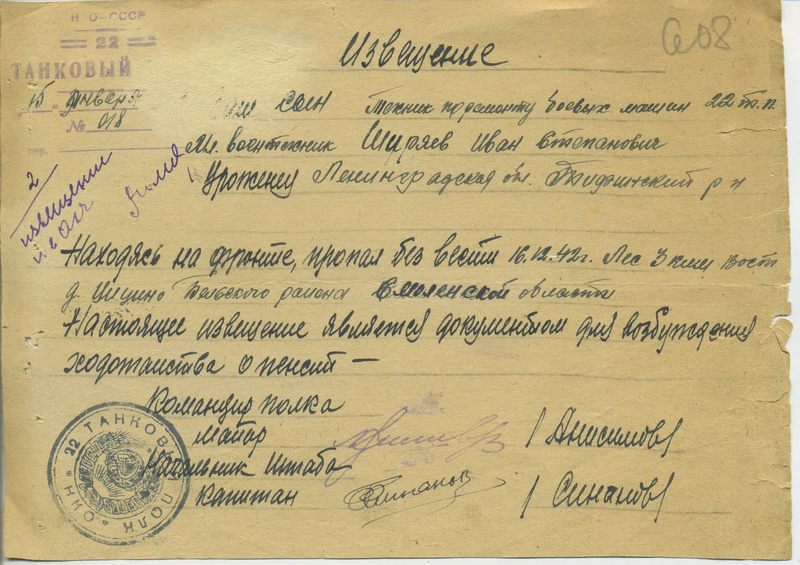 Н О-СССР
22
ТАНКОВЫЙ
15 января
№ 018
608
Извещение
Ваш сын Техник по ремонту боевых машин 22 т.п.
Мл. воентехник Ширяев Иван Степанович
Уроженец Ленинградская обл. Тихвинский р-н
2
извещение
Находясь на фронте, пропал без вести 16.12.42г. Лес 3 клм вост
д. Цицино Бельского района Смоленской области
Настоящее извещение является документом для возбуждения
ходотаиства о пенсии —
Командир полка
майор / Анисимов /
Начальник Штаба
капитан / Синанов /
22 ТАНКОВЫЙ ПОЛК * НКО *